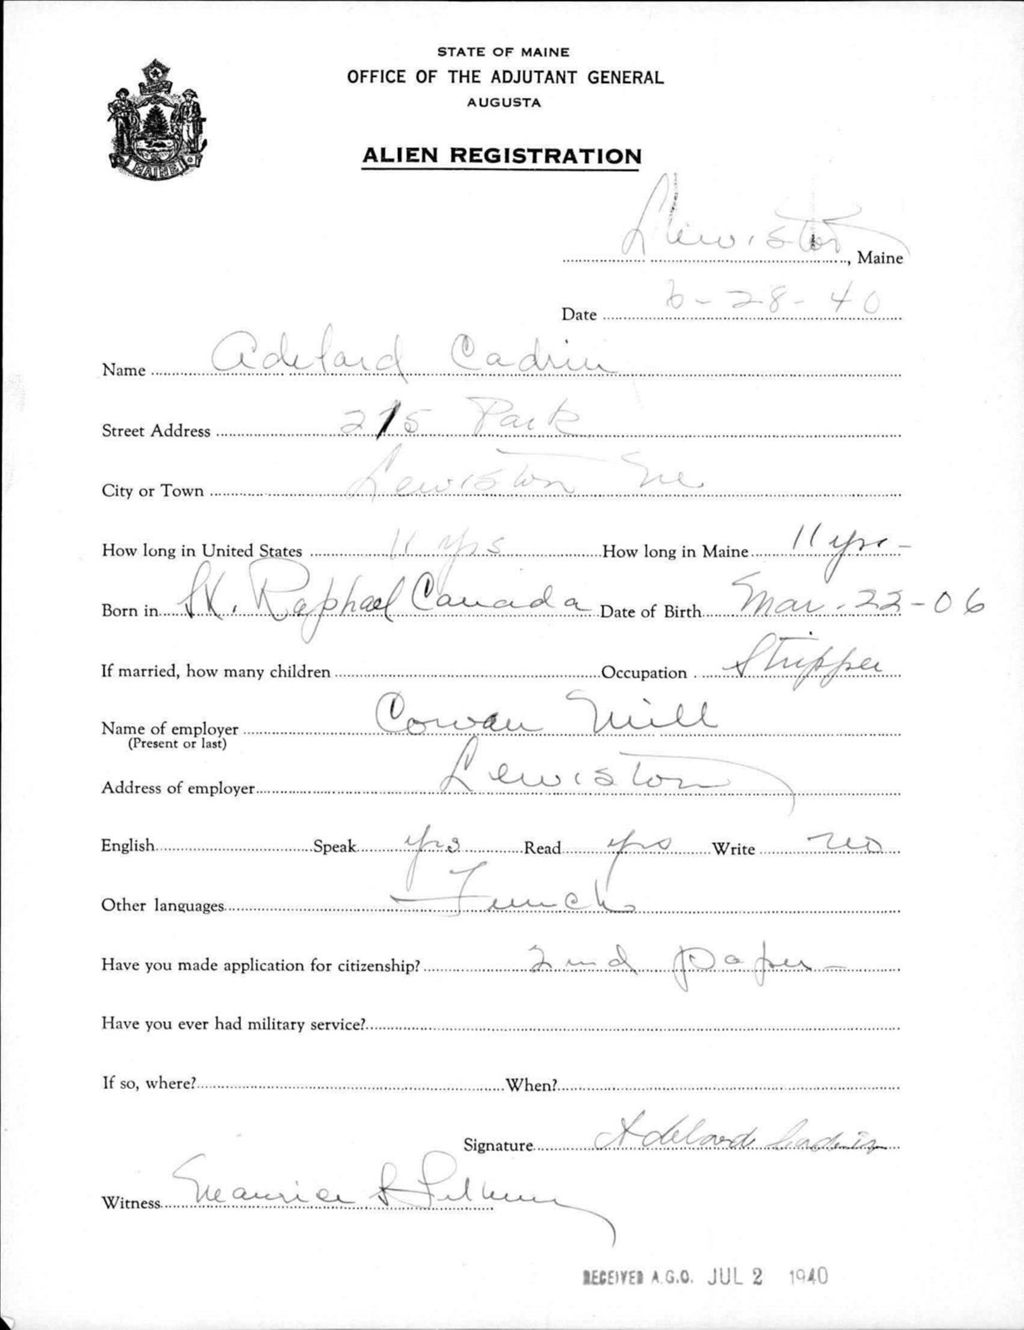 STATE OF MAINE
OFFICE OF THE ADJUTANT GENERAL
AUGUSTA
MAINE
ALIEN REGISTRATION
Lewiston, Maine
Date 6-28-40
Name Adelard Cadrin
Street Address 215 Park
City or Town Lewiston Me
How long in United States 11 yrs How long in Maine 11 yrs-
Born in St. Raphael Canada Date of Birth Mar. 22-06
If married, how many children Occupation Stripper
Name of employer Cowan Mill
(Present or last)
Address of employer Lewiston
English Speak yes Read yes Write no
Other languages French
Have you made application for citizenship? 2nd paper
Have you ever had military service?
If so, where? When?
Signature Adelard Cadrin
Witness Maurice
RECEIVED A.G.O. JUL 2 1940